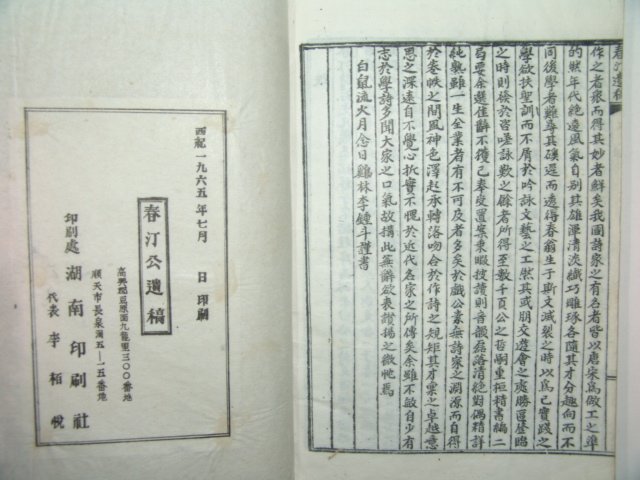 春汀遺稿
作之者衆而得其妙者鮮矣我國詩家之有名者皆以唐宋爲做工之準
的然年代絶遠風氣自別其雄渾淸淡纖巧雕琢各隨其才分趣向而不
同後學者難尋其礎
而透得春翁生于斯文滅裂之時以爲已實踐之
學欲扶聖訓而不屑於吟詠文藝之工然其或朋交遊會之處勝區登臨
之時則發於咨嗟詠歎之餘者所得至數千百公之哲嗣重極精書編二
局要余選佳辭不獲已奉度置案乘暇披讀則音韻磊落淸絶對偶精詳
純熟雖一生全業者有不可及者多矣於戱公素無詩家之淵源而自得
於卷帙之間風神色澤起承轉落吻合於作詩之規矩其才稟之卓越意
思之深遠自不覺心折實不愧於近代名家之所傳矣余雖不敏自少有
志於學詩多聞大家之口氣故搆此蕪辭欲表讚揚之微忱焉
白鼠流火月念日鷄林李鍾斗謹書
西紀一九六五年七月 日印刷
春汀公遺稿
高興郡豆原面九龍里三〇〇番地
印刷處 湖南印刷社
順天市長泉洞五一五番地
代表 李栢悅